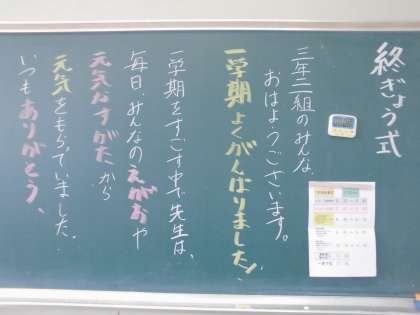 終ぎょう式
三年二組のみんな、
おはようございます。
一学期よくがんばりました！
一学期をすごす中で先生は、
毎日、みんなのえがおや
元気なすがたから
元気をもらっていました。
いつもありがとう、